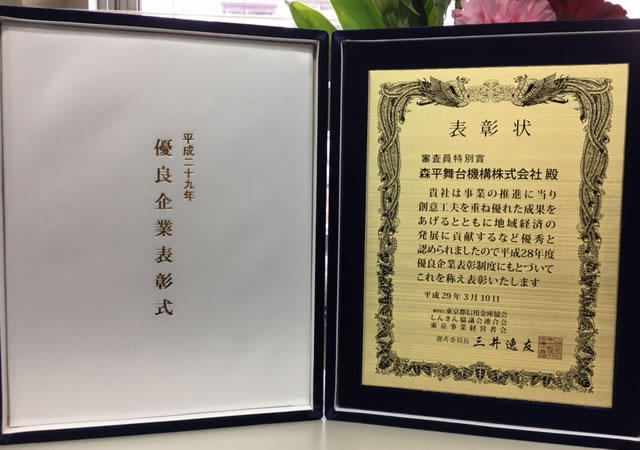 平成二十九年
優良企業表彰式
表彰状
審査員特別賞
森平舞台機構株式会社 殿
貴社は事業の推進に当り
創意工夫を重ね優れた成果を
あげるとともに地域経済の
発展に貢献するなど優秀と
認められましたので平成28年度
優良企業表彰制度にもとづいて
これを称え表彰いたします
平成29年3月10日
東京都信用金庫協会
しんきん協議会連合会
東京事業経営者会
選考委員長 三井逸友